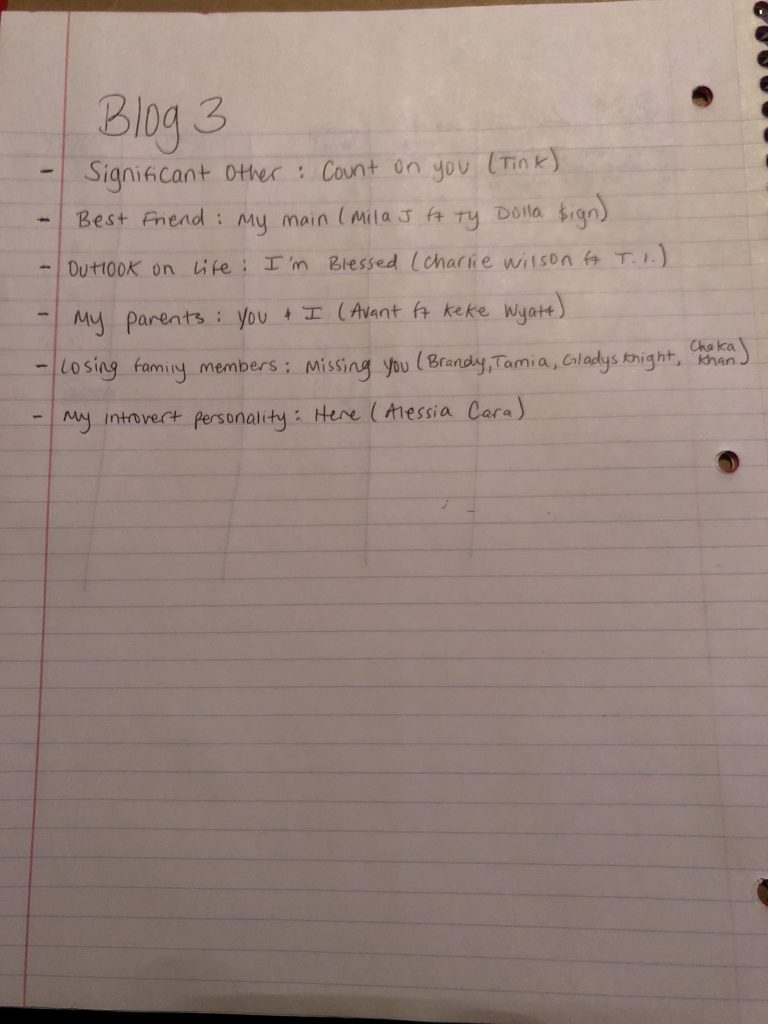 Blog 3
- Significant Other : Count on you (Tink)
- Best Friend : My main (Mila J ft Ty Dolla $ign)
- Outlook on Life : I'm Blessed (Charlie Wilson ft T.I.)
- My parents : You + I (Avant ft Keke Wyatt)
- Losing family members : Missing you (Brandy, Tamia, Gladys Knight, Chaka Khan)
- My introvert personality : Here (Alessia Cara)